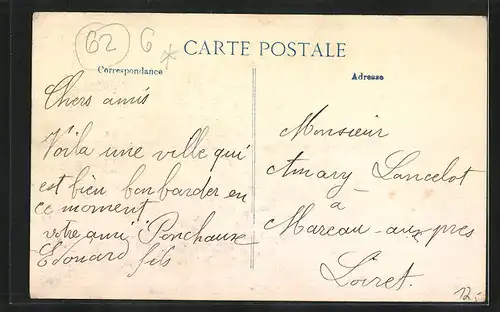 62 6
CARTE POSTALE
Correspondance
Adresse
Chers amis
Voila une ville qui
est bien bonbarder en
ce moment
votre ami Ponchaux
Edouard fils
Monsieur
Amary Lancelot
à
Mareau-aux-pres
Loiret.
12.-